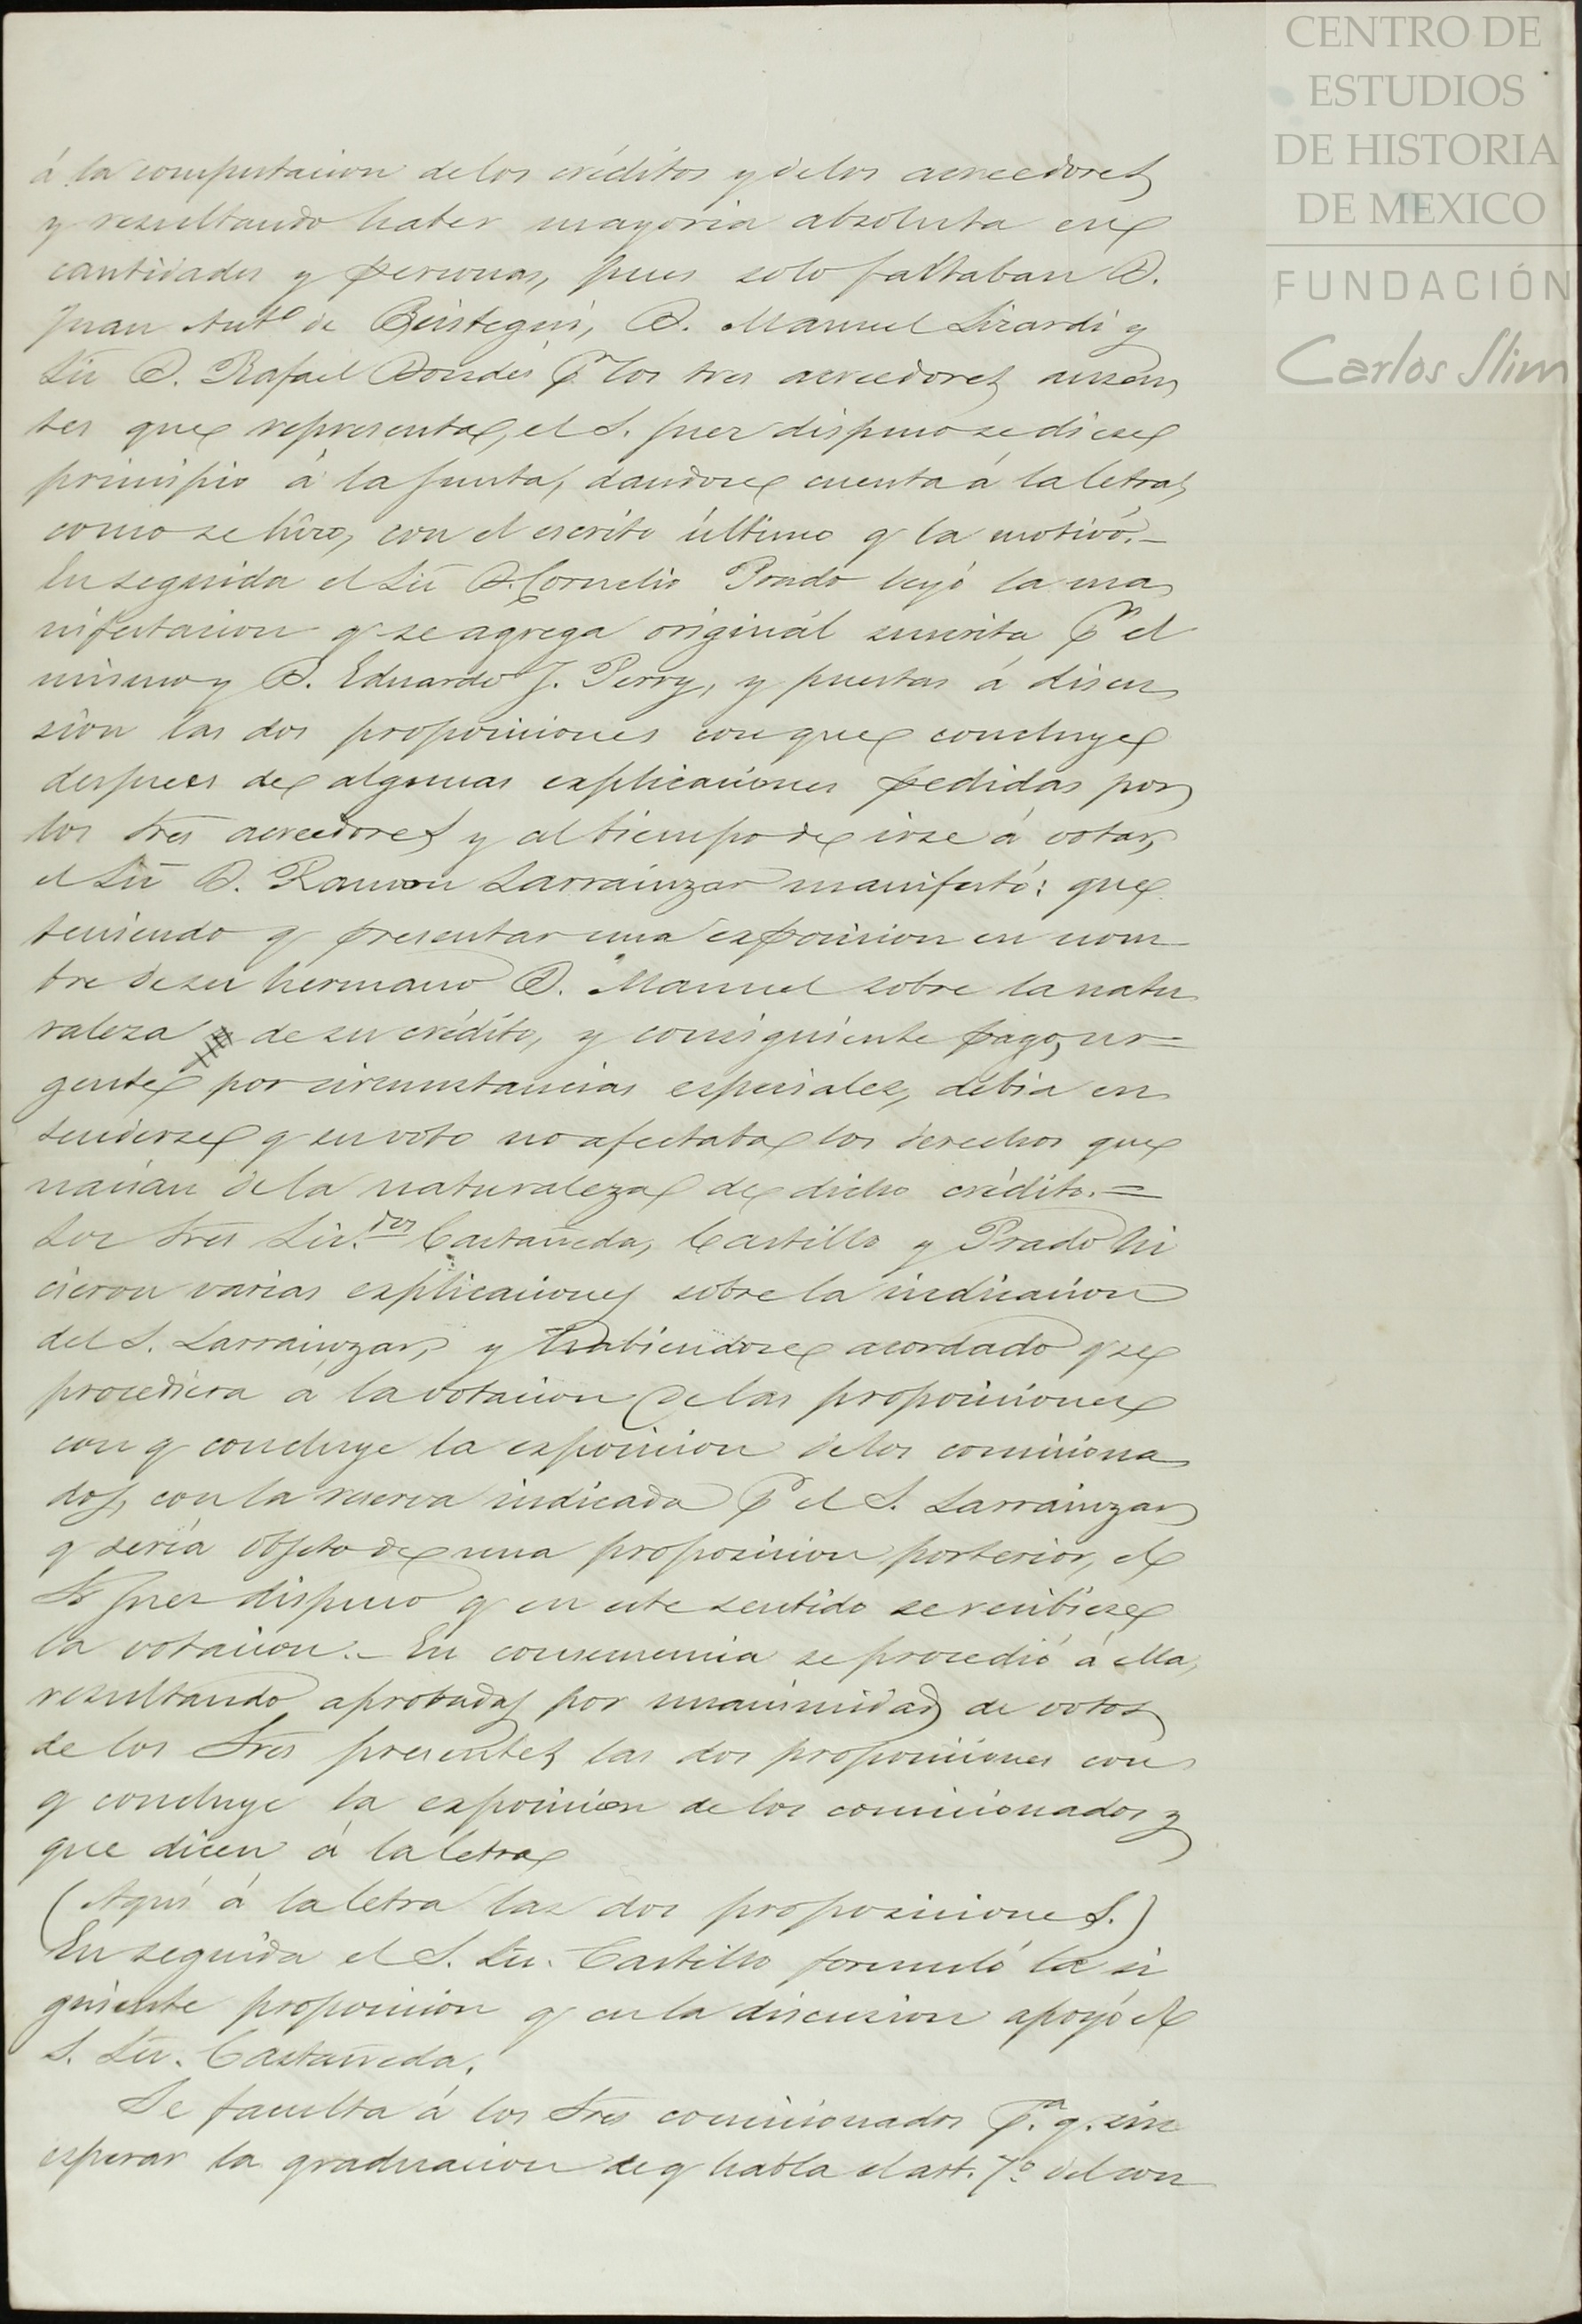 CENTRO DE
ESTUDIOS
DE HISTORIA
DE MEXICO
FUNDACIÓN
Carlos Slim
á la computacion de los créditos y de los acreedores
y resultando haber mayoria absoluta en
cantidades y personas, pues solo faltaban D.
Juan Antº de Beistegui, D. Manuel Lizardi y
Lic D. Rafael Dondé pr los tres acreedores ausen
tes que representa, el S. Juez dispuso se diese
principio á la Junta, dandose cuenta á la letra,
como se hizo, con el escrito último q la motivó.—
En seguida el Lic D. Cornelio Prado leyó la ma
nifestacion q se agrega originál suscrita pr el
mismo y D. Eduardo J. Perry, y puestas á discu
sion las dos proposiciones con que concluye
despues de algunas explicaciones pedidas por
los Sres acreedores y al tiempo de irse á votar,
el Lic D. Ramon Larrainzar manifestó: que
teniendo q presentar una exposicion en nom
bre de su hermano D. Manuel sobre la natu
raleza de su crédito, y consiguiente pago, ur=
gente por circunstancias especiales, debia en
tenderse q su voto no afectaba los derechos que
nacian de la naturaleza de dicho crédito.=
Los Sres Lic.dos Castañeda, Castillo y Prado hi
cieron varias explicaciones sobre la indicacion
del S. Larrainzar, y habiendose acordado q se
procediera a la votacion de las proposiciones
con q concluye la exposicion de los comisiona
dos, con la reserva indicada pr el S. Larrainzar
q sería objeto de una proposicion posterior, el
Sr Juez dispuso q en este sentido se recibiese
la votacion.— En consecuencia se procedió á ella,
resultando aprobadas por unanimidad de votos
de los Sres presentes las dos proposiciones con
q concluye la exposicion de los comisionados y
que dicen á la letra
(Aquí á la letra las dos proposiciones.)
En seguida el S. Lic. Castillo formuló la si
guiente proposicion q en la discusion apoyó el
S. Lic. Castañeda.
Se faculta á los Sres comisionados p.a q. sin
esperar la graduacion de q habla el art. 7º del con